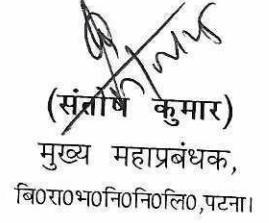 (संतोष कुमार)
मुख्य महाप्रबंधक,
बि०रा०भ०नि०नि०लि०,पटना।